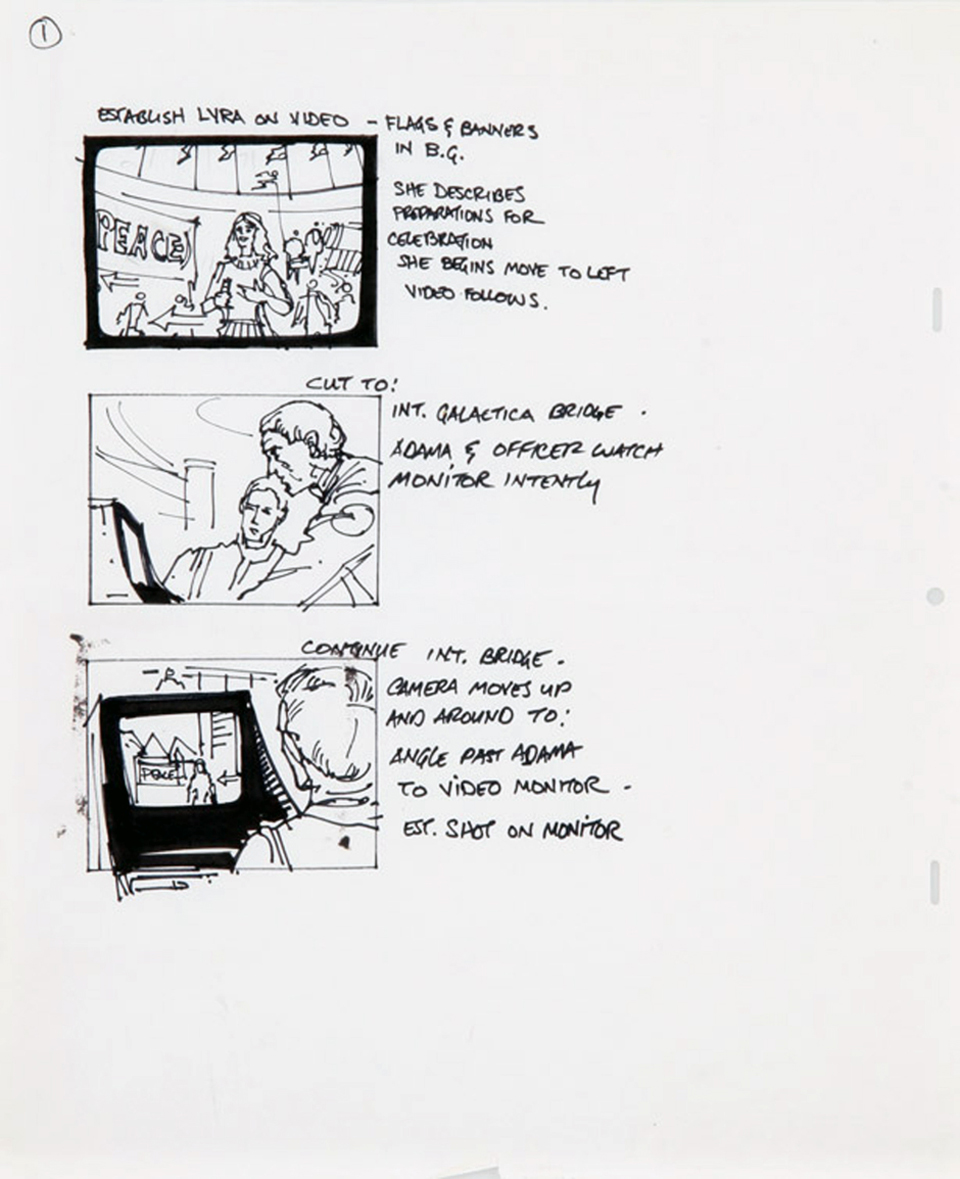 1
ESTABLISH LYRA ON VIDEO – FLAGS & BANNERS
IN B.G.
SHE DESCRIBES
PREPARATIONS FOR
CELEBRATION
SHE BEGINS MOVE TO LEFT
VIDEO FOLLOWS.
PEACE
CUT TO:
INT. GALACTICA BRIDGE .
ADAMA & OFFICER WATCH
MONITOR INTENTLY
CONTINUE INT. BRIDGE .
CAMERA MOVES UP
AND AROUND TO:
ANGLE PAST ADAMA
TO VIDEO MONITOR -
EST. SHOT ON MONITOR
PEACE